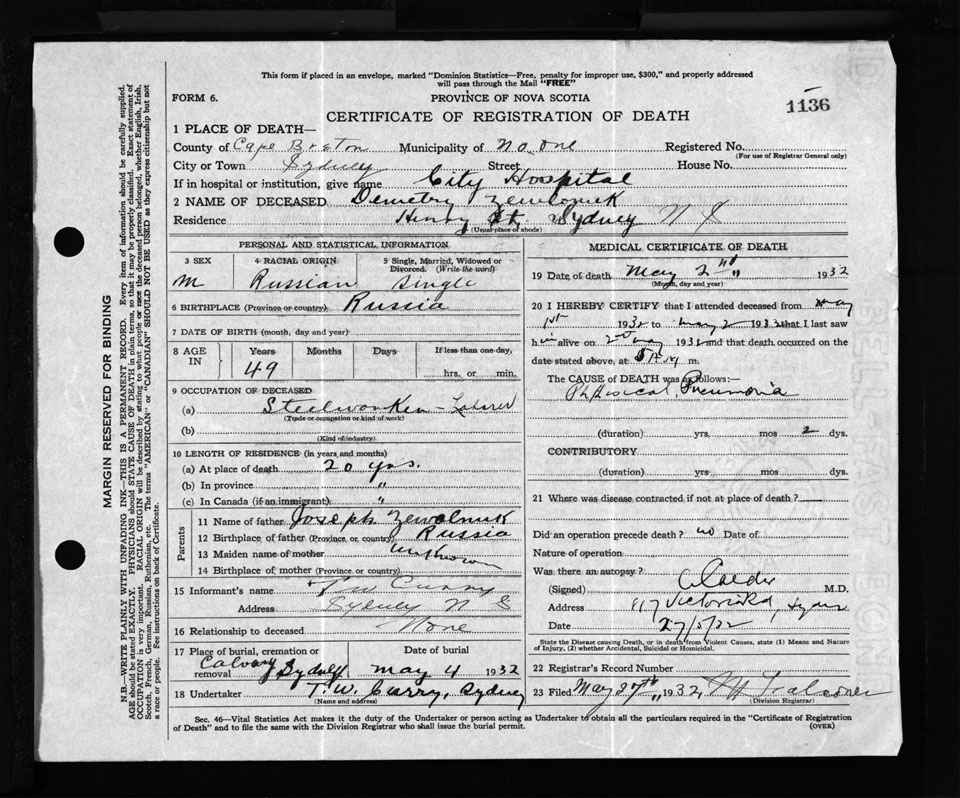 This form if placed in an envelope, marked "Dominion Statistics—Free, penalty for improper use, $300," and properly addressed
will pass through the Mail "FREE"
FORM 6.
PROVINCE OF NOVA SCOTIA
1136
CERTIFICATE OF REGISTRATION OF DEATH
1 PLACE OF DEATH—
County of Cape Breton Municipality of No. One Registered No.
(For use of Registrar General only)
City or Town Sydney Street House No.
If in hospital or institution, give name City Hospital
2 NAME OF DECEASED Demetry
Residence Henry St. Sydney N S
(Usual place of abode)
PERSONAL AND STATISTICAL INFORMATION
3 SEX 4 RACIAL ORIGIN 5 Single, Married, Widowed or
Divorced. (Write the word)
M Russian Single
6 BIRTHPLACE (Province or country) Russia
7 DATE OF BIRTH (month, day and year)
8 AGE IN Years Months Days If less than one day,
49 hrs. or min.
9 OCCUPATION OF DECEASED
(a) Steelworker - Laborer
(Trade or occupation or kind of work)
(b)
(Kind of industry)
10 LENGTH OF RESIDENCE (in years and months)
(a) At place of death 20 yrs.
(b) In province "
(c) In Canada (if an immigrant) "
Parents
11 Name of father Joseph
12 Birthplace of father (Province or country) Russia
13 Maiden name of mother Unknown
14 Birthplace of mother (Province or country)
15 Informant's name Curry
Address Sydney N S
16 Relationship to deceased None
17 Place of burial, cremation or removal Date of burial
Calvary Sydney May 4 1932
18 Undertaker T. W. Curry, Sydney
(Name and address)
MEDICAL CERTIFICATE OF DEATH
19 Date of death May 2nd " 1932
(Month, day and year)
20 I HEREBY CERTIFY that I attended deceased from May
1st 1932 to May 2 1932 that I last saw
him alive on 2nd May 1932 and that death occurred on the
date stated above, at 5 A.M. m.
The CAUSE of DEATH was as follows:—
Pneumonia
(duration) yrs. mos 2 dys.
CONTRIBUTORY
(duration) yrs. mos dys.
21 Where was disease contracted if not at place of death?
Did an operation precede death? no Date of
Nature of operation
Was there an autopsy?
(Signed) M.D.
Address Victoria Rd, Sydney
Date 27/5/32
State the Disease causing Death, or in death from Violent Causes, state (1) Means and Nature
of Injury, (2) whether Accidental, Suicidal or Homicidal.
22 Registrar's Record Number
23 Filed May 27th " 1932
(Division Registrar)
Sec. 46—Vital Statistics Act makes it the duty of the Undertaker or person acting as Undertaker to obtain all the particulars required in the "Certificate of Registration
of Death" and to file the same with the Division Registrar who shall issue the burial permit. (OVER)
MARGIN RESERVED FOR BINDING
N.B.—WRITE PLAINLY WITH UNFADING INK—THIS IS A PERMANENT RECORD. Every item of information should be carefully supplied.
AGE should be stated EXACTLY. PHYSICIANS should STATE CAUSE OF DEATH in plain terms, so that it may be properly classified. Exact statement of
OCCUPATION is very important. RACIAL ORIGIN will be described by stating to what people or race the deceased person belonged, whether English, Irish,
Scotch, French, German, Russian, Ruthenian, etc. The terms "AMERICAN" or "CANADIAN" SHOULD NOT BE USED as they express citizenship but not
a race or people. See instructions on back of Certificate.